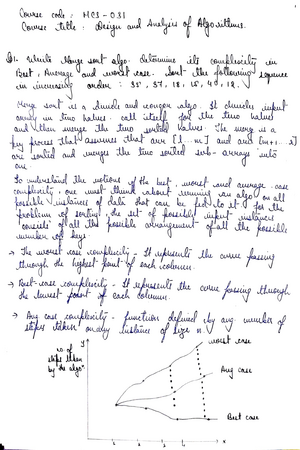 Course code : MCS - 031
Course Title : Design and Analysis of Algorithms.
Q1. Write Merge sort algo. determine its complexity in
Best, Average and worst case. Sort the following sequence
in increasing order : 35, 37, 18, 15, 40, 12.
Merge sort is a divide and conquer algo. It divides input
array in two halves. call itself for the two halves
and then merge the two sorted halves. The merge is a
key process that assumes that arr [l...m] and arr [m+1...r]
are sorted and merges the two sorted sub-arrays into
one.
To understand the notions of the best, worst and average case
complexity, one must think about running an algo. on all
possible instances of data that can be fed to it. for the
problem of sorting, the set of possible input instances
consists of all the possible arrangement of all the possible
number of keys.
→ The worst case complexity - It represents the curve passing
through the highest point of each column.
→ Best-case complexity - It represents the curve passing through
the lowest point of each column.
→ Avg case complexity - function defined by avg number of
steps taken on any instance of size n.
no of
steps taken
by the algo
y
worst case
Avg case
Best case
1 2 3 4 x